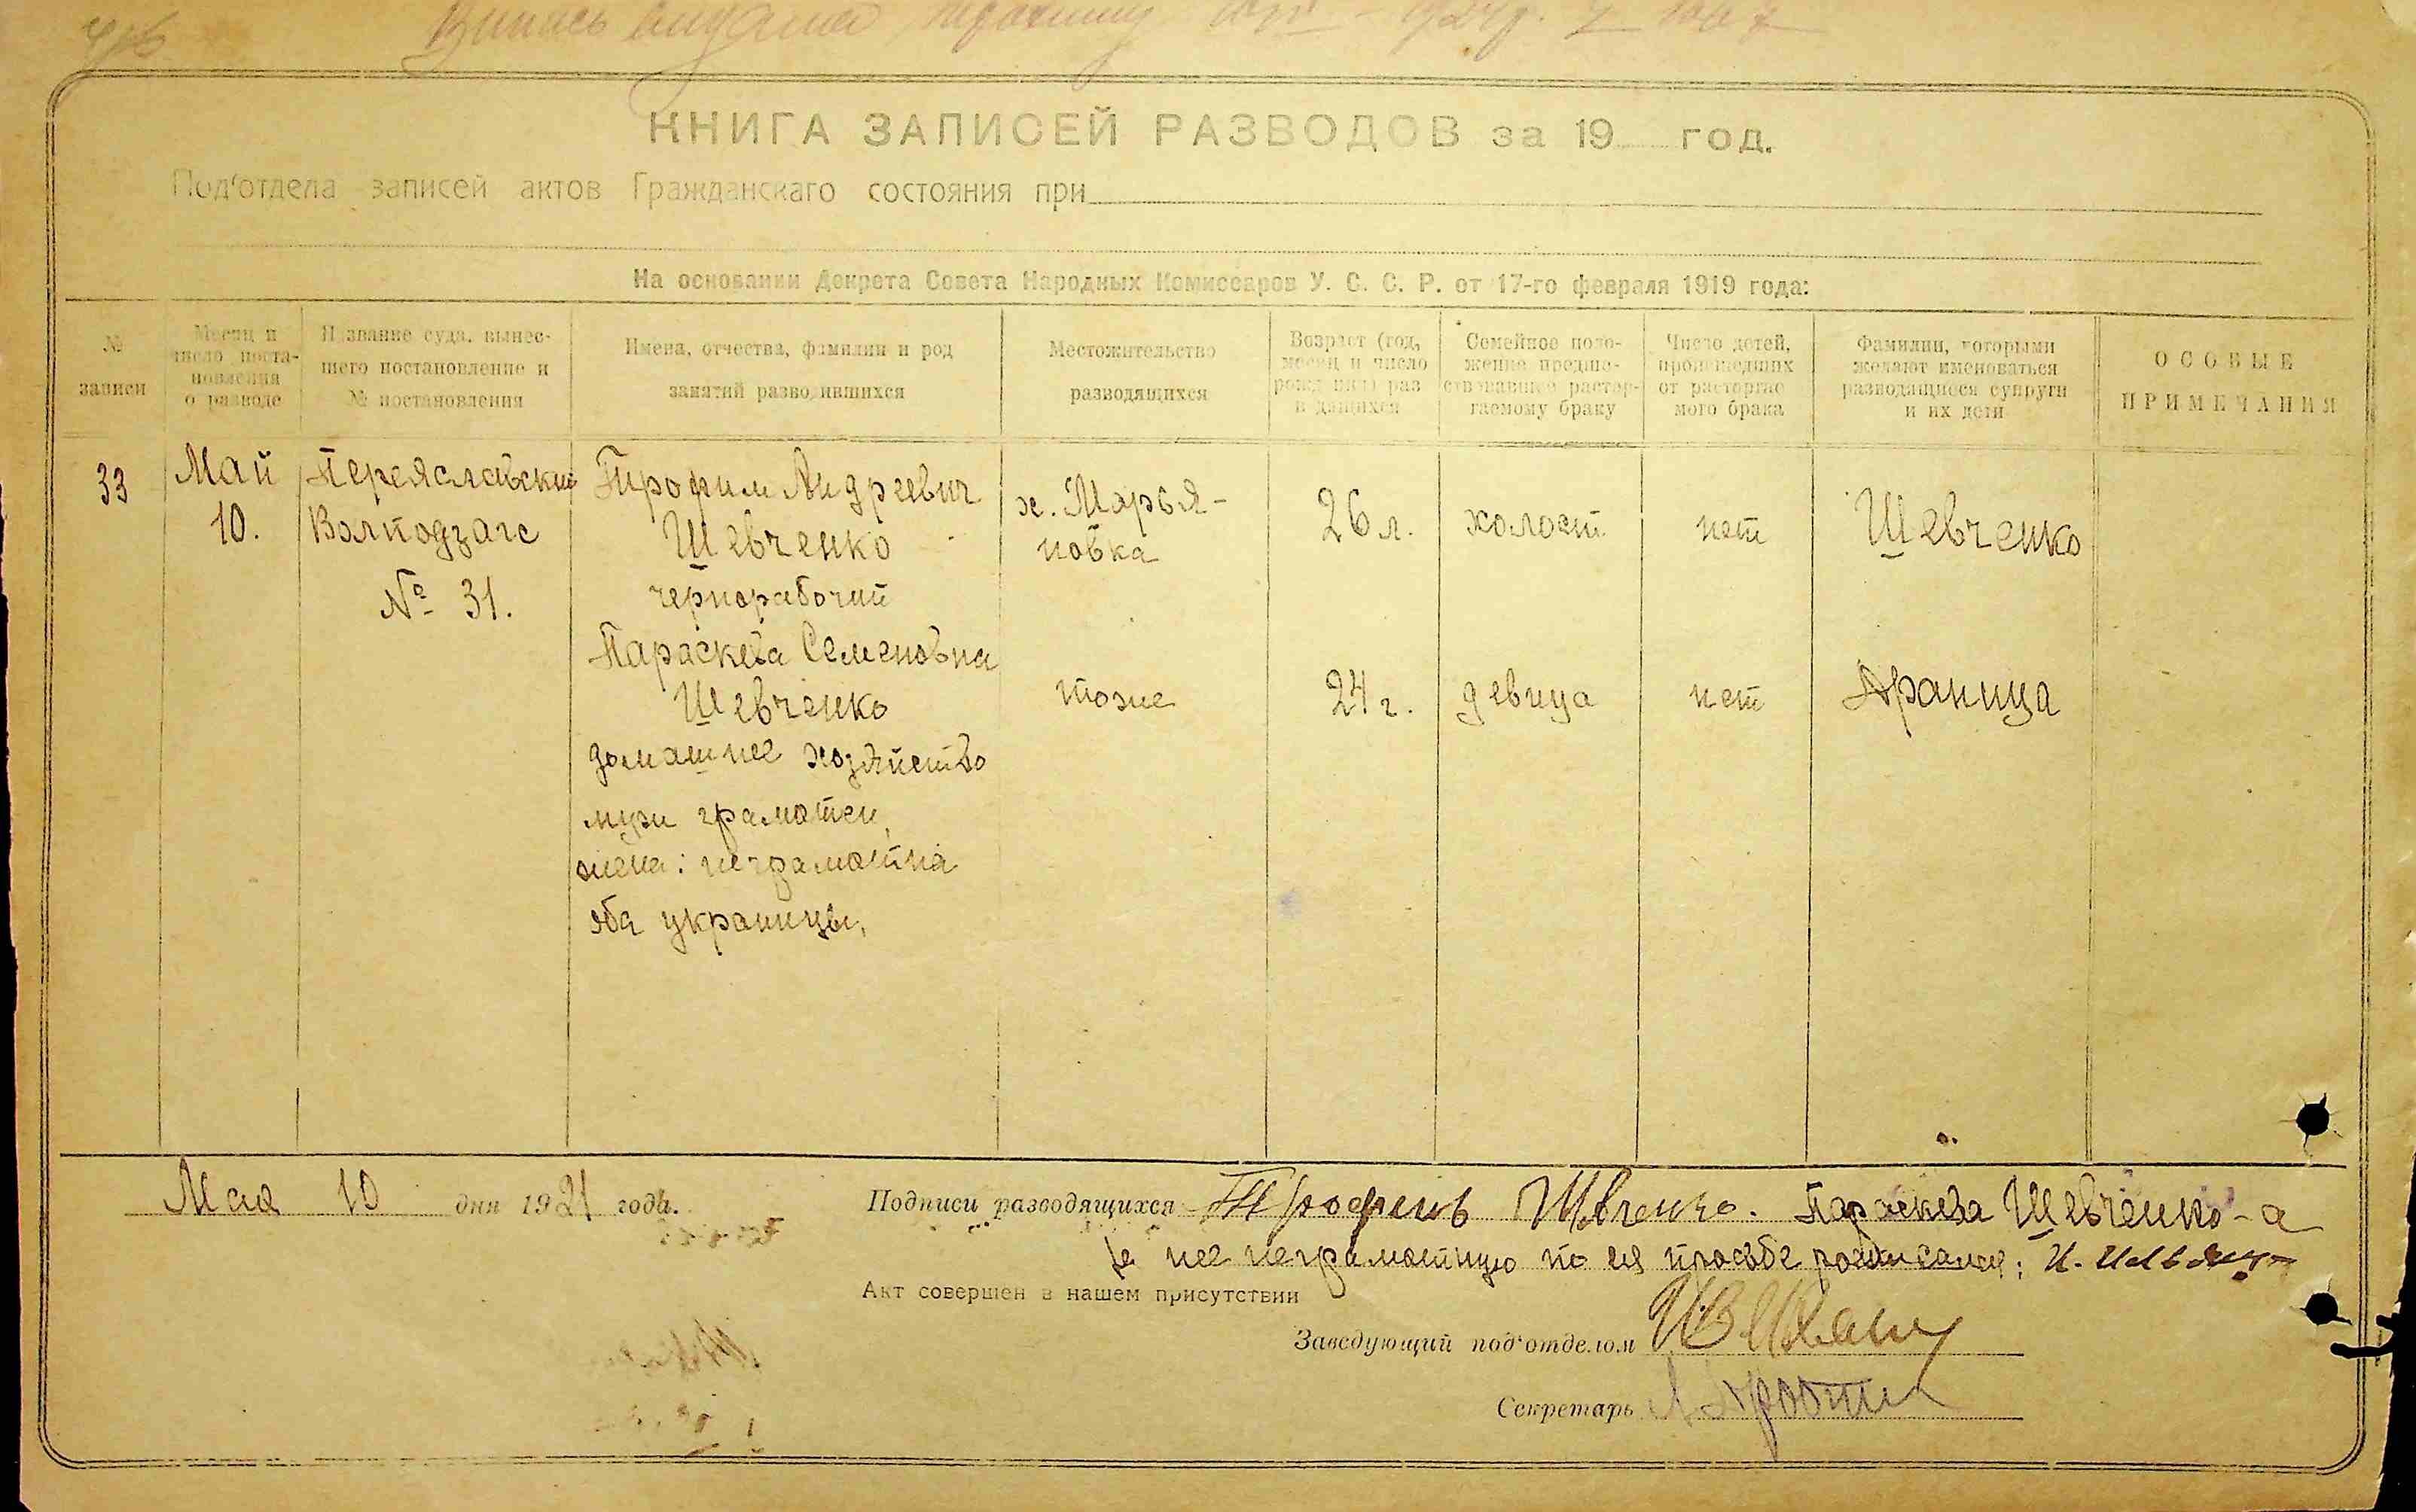 КНИГА ЗАПИСЕЙ РАЗВОДОВ за 19 год.
Под'отдела записей актов Гражданскаго состояния при
На основании Декрета Совета Народных Комиссаров У. С. С. Р. от 17-го февраля 1919 года:
№ записи
Месяц и число поста-
новления
о разводе
Название суда, вынес-
шего постановление и
№ постановления
Имена, отчества, фамилии и род
занятий разводившихся
Местожительство
разводящихся
Возраст (год,
месяц и число
рожд
Семейное поло-
жение предше-
ствовавшее растор-
гаемому браку
Число детей,
происшедших
от расторгае
мого брака
Фамилии, которыми
желают именоваться
разводящиеся супруги
и их дети
ОСОБЫЕ
ПРИМЕЧАНИЯ
33
Май
10.
Переяславский
Волподзагс
№ 31.
Трофим Андреевич
Шевченко
чернорабочий
х. Марья-
новка
26 л.
холост
нет
Шевченко
Параскева Семеновна
Шевченко
домашнее хозяйство
муж грамотен,
жена: неграмотна
оба украинцы,
тоже
24 г.
девица
нет
Храпица
Мая 10 дня 1921 года.
Подписи разводящихся Трофимъ Шевченко. Параскева Шевченко - а
за нее неграмотную по ея просьбе росписался:
Акт совершен в нашем присутствии
Заведующий под'отделом
Секретарь